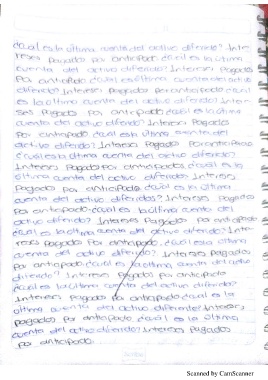 ¿cual es la última cuenta del activo diferido? Inte-
reses Pagados por anticipado ¿cual es la última
cuenta del activo diferido? Intereses Pagados
Por anticipado ¿cual es última cuenta del activo
diferido? Intereses Pagados por anticipado ¿cual
es la última cuenta del activo diferido? Inter-
ses Pagados por anticipado, ¿cual es la última
cuenta del activo diferido? Intereses Pagados
Por anticipado ¿cual es la última cuenta del
activo diferido? Intereses Pagados Por anticipado
¿cual es la última cuenta del activo diferido?
Intereses Pagados por anticipados ¿cual es la
última cuenta del activo diferido? Intereses
Pagados por anticipado ¿cual es la última
cuenta del activo diferidos? Intereses Pagados
Por anticipado ¿cual es la última cuenta del
activo diferido? Intereses Pagados por anticipado
¿cual es la última cuenta del activo diferido? Inte-
reses Pagados por anticipado. ¿cual es la última
cuenta del activo diferido? Intereses Pagados
por anticipado ¿cual es la última cuenta del activo
diferido? Intereses Pagados por anticipado
¿cual es la última cuenta del activo diferido?
Intereses Pagados por anticipado ¿cual es la
última cuenta del activo diferente? Intereses
Pagados por anticipado ¿cual es la última
cuenta del activo diferido? Intereses Pagados
por anticipado.
Scanned by CamScanner